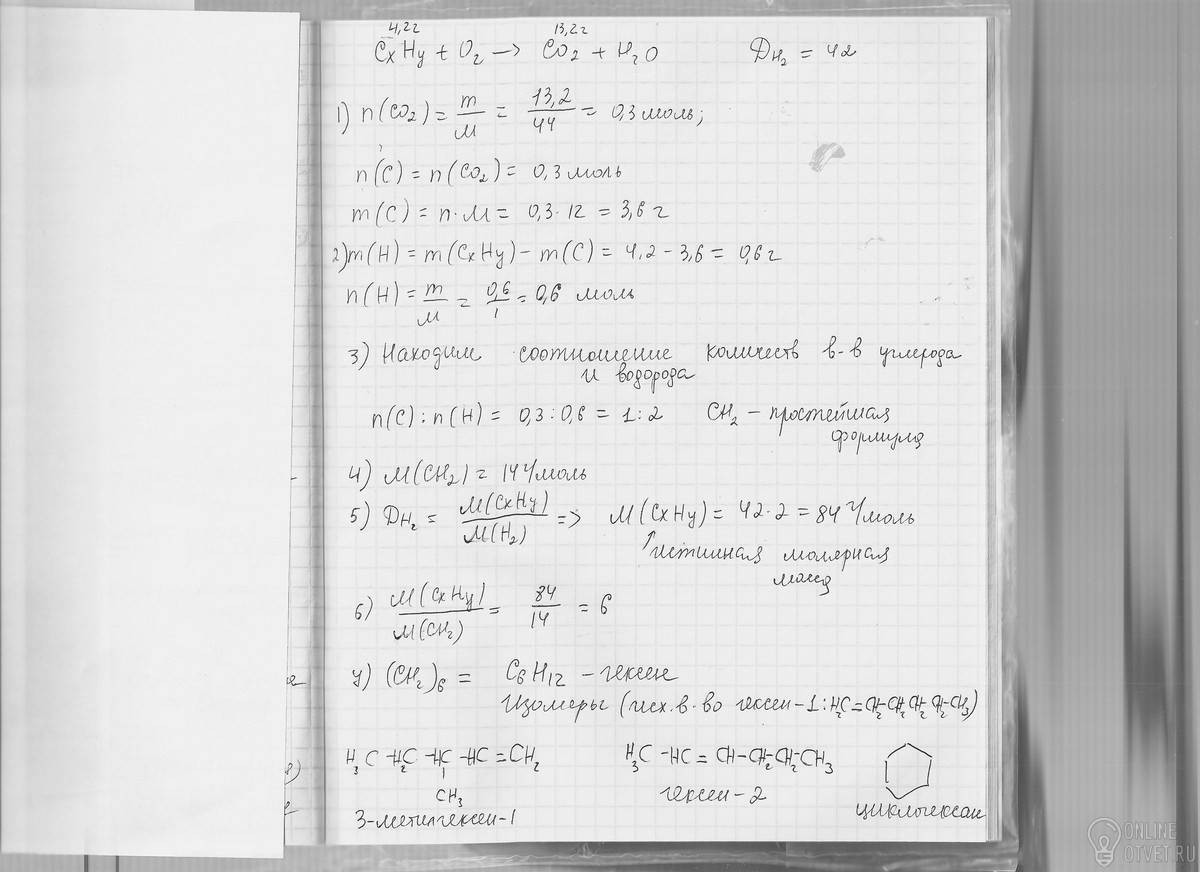 4,2г 13,2г
CxHy + O2 → CO2 + H2O DH2 = 42
1) n(CO2) = m/M = 13,2/44 = 0,3 моль;
n(C) = n(CO2) = 0,3 моль
m(C) = n·M = 0,3·12 = 3,6 г
2) m(H) = m(CxHy) – m(C) = 4,2 – 3,6 = 0,6 г
n(H) = m/M = 0,6/1 = 0,6 моль
3) Находим соотношение количеств в-в углерода
и водорода
n(C) : n(H) = 0,3 : 0,6 = 1 : 2 CH2 – простейшая
формула
4) M(CH2) = 14 г/моль
5) DH2 = M(CxHy)/M(H2) => M(CxHy) = 42·2 = 84 г/моль
↑истинная молярная
масса
6) M(CxHy)/M(CH2) = 84/14 = 6
7) (CH2)6 = C6H12 – гексен
Изомеры (исх. в-во гексен-1: H2C=CH2-CH2-CH2-CH2-CH3)
H3C-H2C-HC-HC=CH2 H3C-HC=CH-CH2-CH2-CH3
CH3
гексен-2
3-метилгексен-1
циклогексан
ONLINE
OTVET.RU